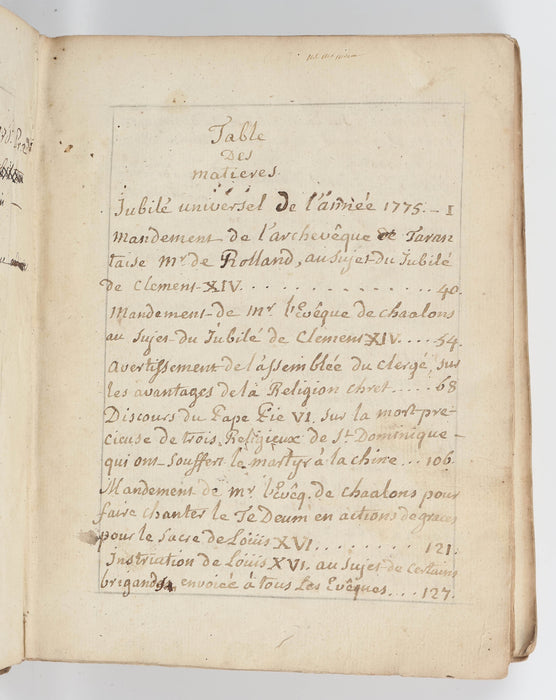 Table
Des
matieres.
Jubilé universel de l'année 1775. - 1
Mandement de l'archevêque de Taran
taise mr. de Rolland, au sujet du Jubilé
de Clement XIV. . . . . . . . . . . . . . 40.
Mandement de mr. l'Evêque de chaalons
au sujet du Jubilé de Clement XIV. . . . 54.
Avertissement de l'assemblée du clergé, sur
les avantages de la Religion chret. . . . . 68
Discours du Pape Pie VI. sur la mort pré-
cieuse de trois Religieux de St. Dominique -
qui ont souffert le martyr à la chine . . . 106.
Mandement de mr. l'Evêq. de chaalons pour
faire chanter le Te Deum en actions de graces
pour le sacre de Loüis XVI. . . . . . . . . 121.
Instruction de Loüis XVI. au sujet de certains
brigands, envoiée à tous les Evêques. . . . 127.